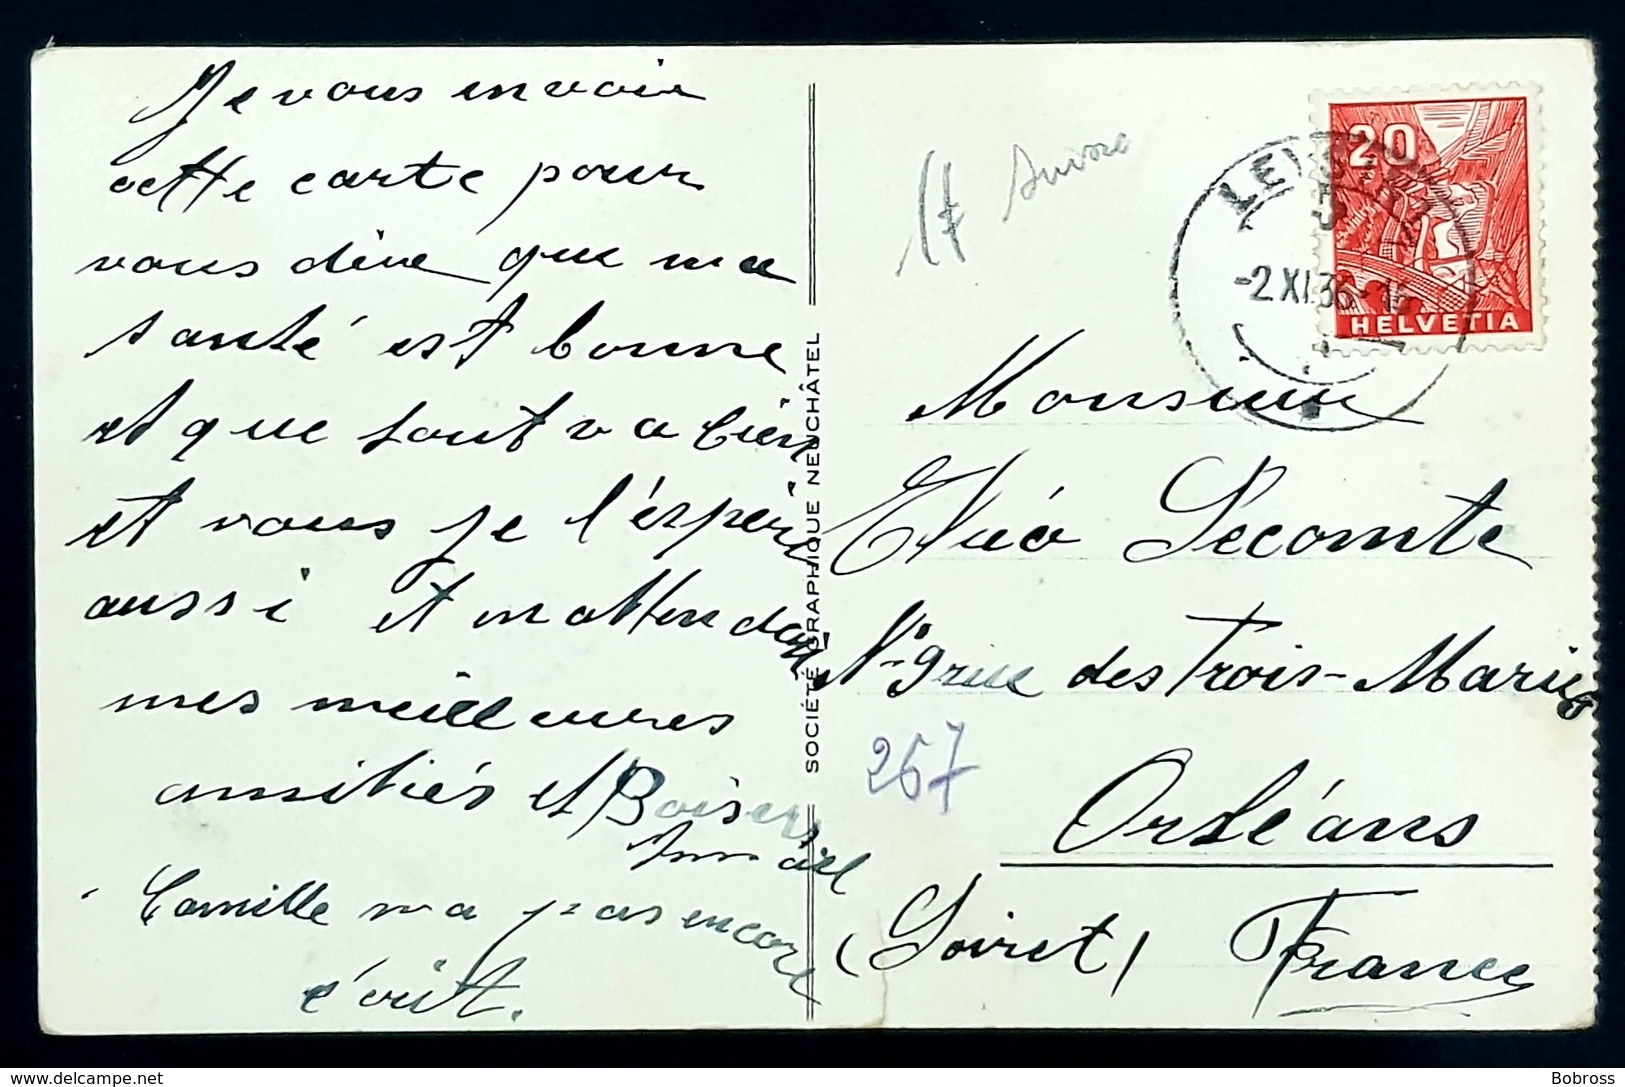 Je vous envoie
cette carte pour
vous dire que ma
santé est bonne
et que tout va bien
et vous je l'éspère
aussi Et en attendant
mes meilleures
amitiés et Baisers
Camille m'a pas encore
écrit.
SOCIÉTÉ GRAPHIQUE NEUCHÂTEL
17 Suisse
20
HELVETIA
-2 XI 36-15
Monsieur
Théo Lecomte
N° 9 rue des Trois-Maries
267
Orléans
(Loiret) France
delcampe.net
Bobross